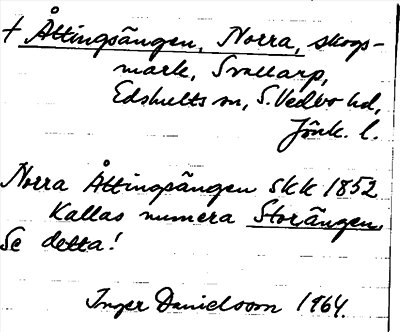 + Åttingsängen, Norra, skogs-
mark, Svallarp,
Edshults sn, S. Vedbo hd,
Jönk. l.
Norra Åttingsängen SKK 1852
Kallas numera Storängen
Se detta!
Inger Danielsson 1964.